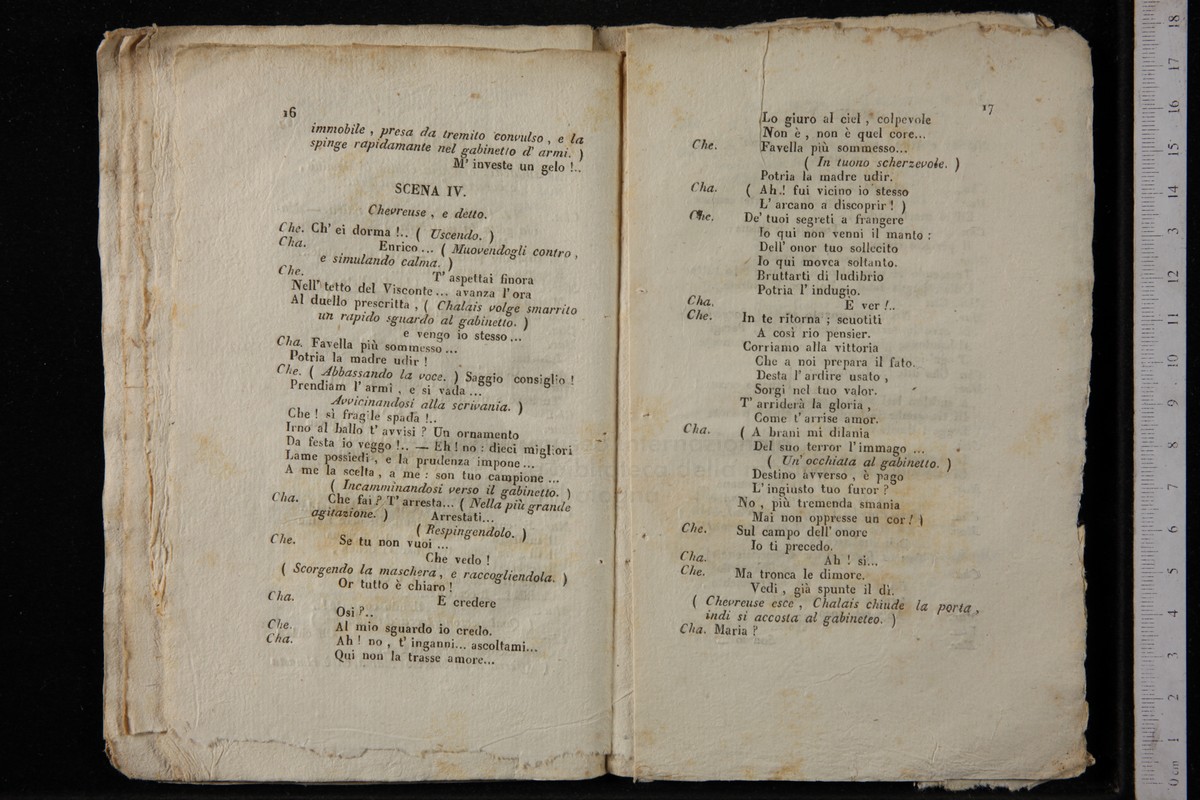 16
immobile , presa da tremito convulso , e la
spinge rapidamante nel gabinetto d' armi. )
M' investe un gelo !..
SCENA IV.
Chevreuse , e detto.
Che. Ch' ei dorma !.. ( Uscendo. )
Cha. Enrico ... ( Muovendogli contro ,
e simulando calma. )
Che. T' aspettai finora
Nell' tetto del Visconte ... avanza l' ora
Al duello prescritta , ( Chalais volge smarrito
un rapido sguardo al gabinetto. )
e vengo io stesso ...
Cha. Favella più sommesso ...
Potria la madre udir !
Che. ( Abbassando la voce. ) Saggio consiglio !
Prendiam l' armi , e si vada ...
Avvicinandosi alla scrivania. )
Che ! sì fragile spada !..
Irno al ballo t' avvisi ? Un ornamento
Da festa io veggo !.. — Eh ! no : dieci migliori
Lame possiedi , e la prudenza impone ...
A me la scelta , a me : son tuo campione ...
( Incamminandosi verso il gabinetto. )
Cha. Che fai ? T' arresta... ( Nella più grande
agitazione. ) Arrestati...
( Respingendolo. )
Che. Se tu non vuoi ...
Che vedo !
( Scorgendo la maschera , e raccogliendola. )
Or tutto è chiaro !
Cha. E credere
Osi ?..
Che. Al mio sguardo io credo.
Cha. Ah ! no , t' inganni... ascoltami...
Qui non la trasse amore...
17
Lo giuro al ciel , colpevole
Non è , non è quel core...
Che. Favella più sommesso...
( In tuono scherzevole. )
Potria la madre udir.
Cha. ( Ah.! fui vicino io stesso
L' arcano a discoprir ! )
Che. De' tuoi segreti a frangere
Io qui non venni il manto :
Dell' onor tuo sollecito
Io qui movea soltanto.
Bruttarti di ludibrio
Potria l' indugio.
Cha. È ver !..
Che. In te ritorna ; scuotiti
A così rio pensier.
Corriamo alla vittoria
Che a noi prepara il fato.
Desta l' ardire usato ,
Sorgi nel tuo valor.
T' arriderà la gloria ,
Come t' arrise amor.
Cha. ( A brani mi dilania
Del suo terror l' immago ...
( Un' occhiata al gabinetto. )
Destino avverso , è pago
L' ingiusto tuo furor ?
No , più tremenda smania
Mai non oppresse un cor ! )
Che. Sul campo dell' onore
Io ti precedo.
Cha. Ah ! si...
Che. Ma tronca le dimore.
Vedi , già spunte il dì.
( Chevreuse esce , Chalais chiude la porta ,
indi si accosta al gabineteo. )
Cha. Maria ?